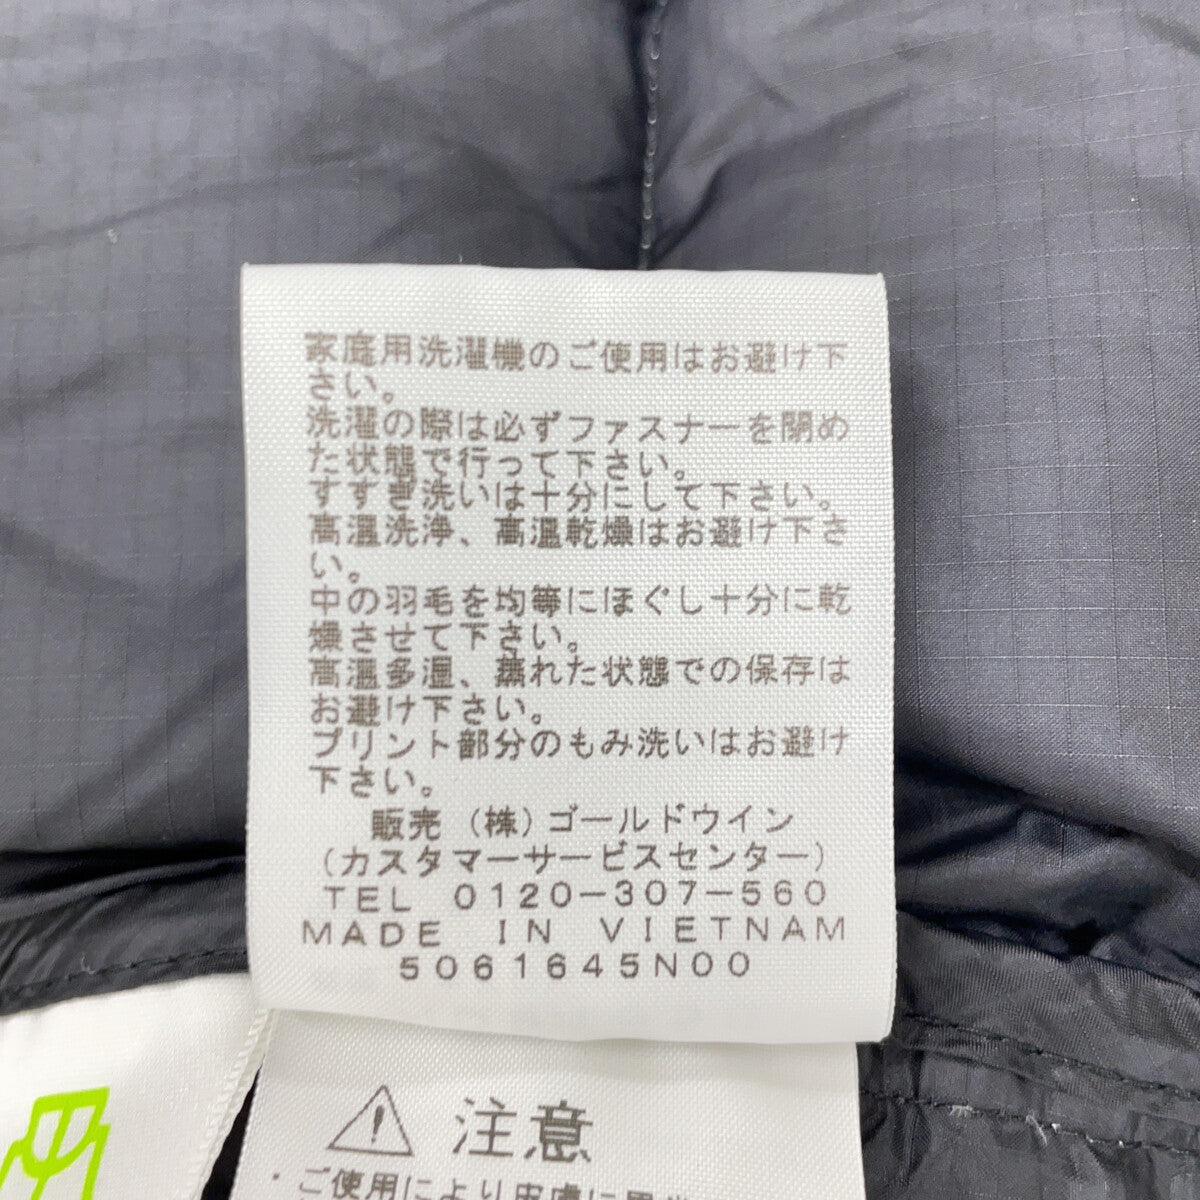 家庭用洗濯機のご使用はお避け下
さい。
洗濯の際は必ずファスナーを閉め
た状態で行って下さい。
すすぎ洗いは十分にして下さい。
高温洗浄、高温乾燥はお避け下さ
い。
中の羽毛を均等にほぐし十分に乾
燥させて下さい。
高温多湿、蒸れた状態での保存は
お避け下さい。
プリント部分のもみ洗いはお避け
下さい。
販売 (株)ゴールドウイン
(カスタマーサービスセンター)
TEL 0120-307-560
MADE IN VIETNAM
5061645N00
注意
・ご使用により皮膚に